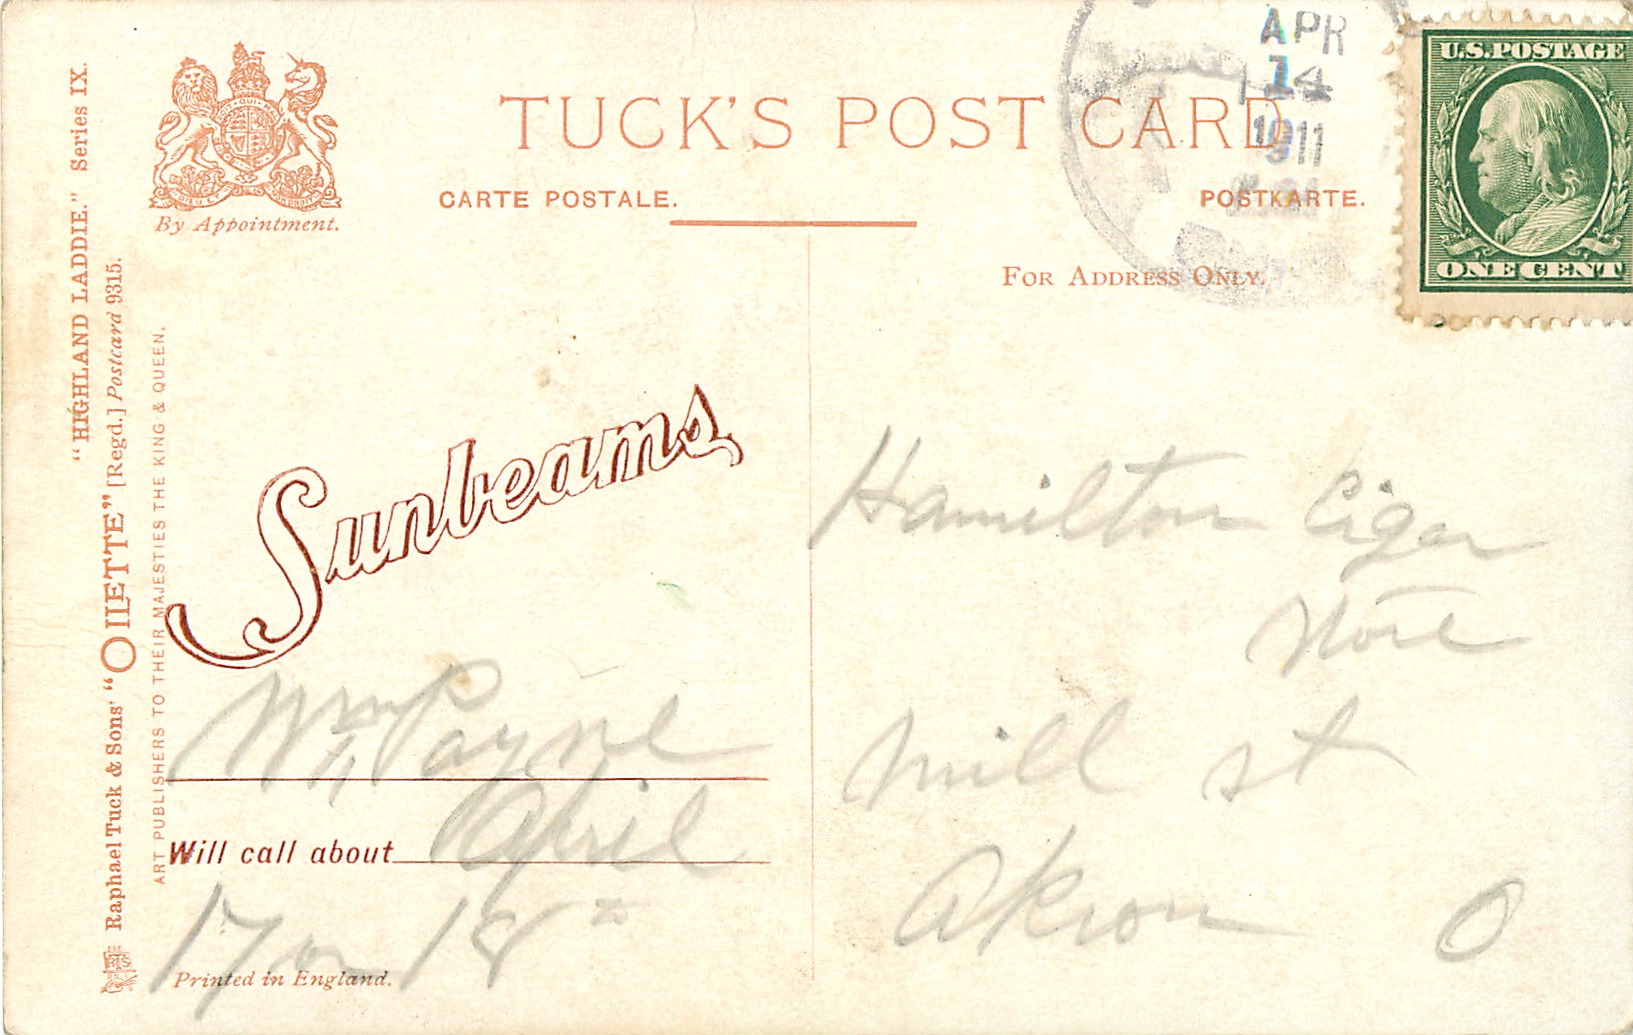 TUCK'S POST CARD
CARTE POSTALE.
POSTKARTE.
FOR ADDRESS ONLY.
By Appointment.
"HIGHLAND LADDIE." Series IX.
Raphael Tuck & Sons' "OILETTE" [Regd.] Postcard 9315.
ART PUBLISHERS TO THEIR MAJESTIES THE KING & QUEEN.
APR
14
1911
U.S.POSTAGE
ONE CENT
Sunbeams
Wm Payne
Will call about April
17 or 18
Printed in England.
Hamilton Cigar
Store
Mill st
Akron O